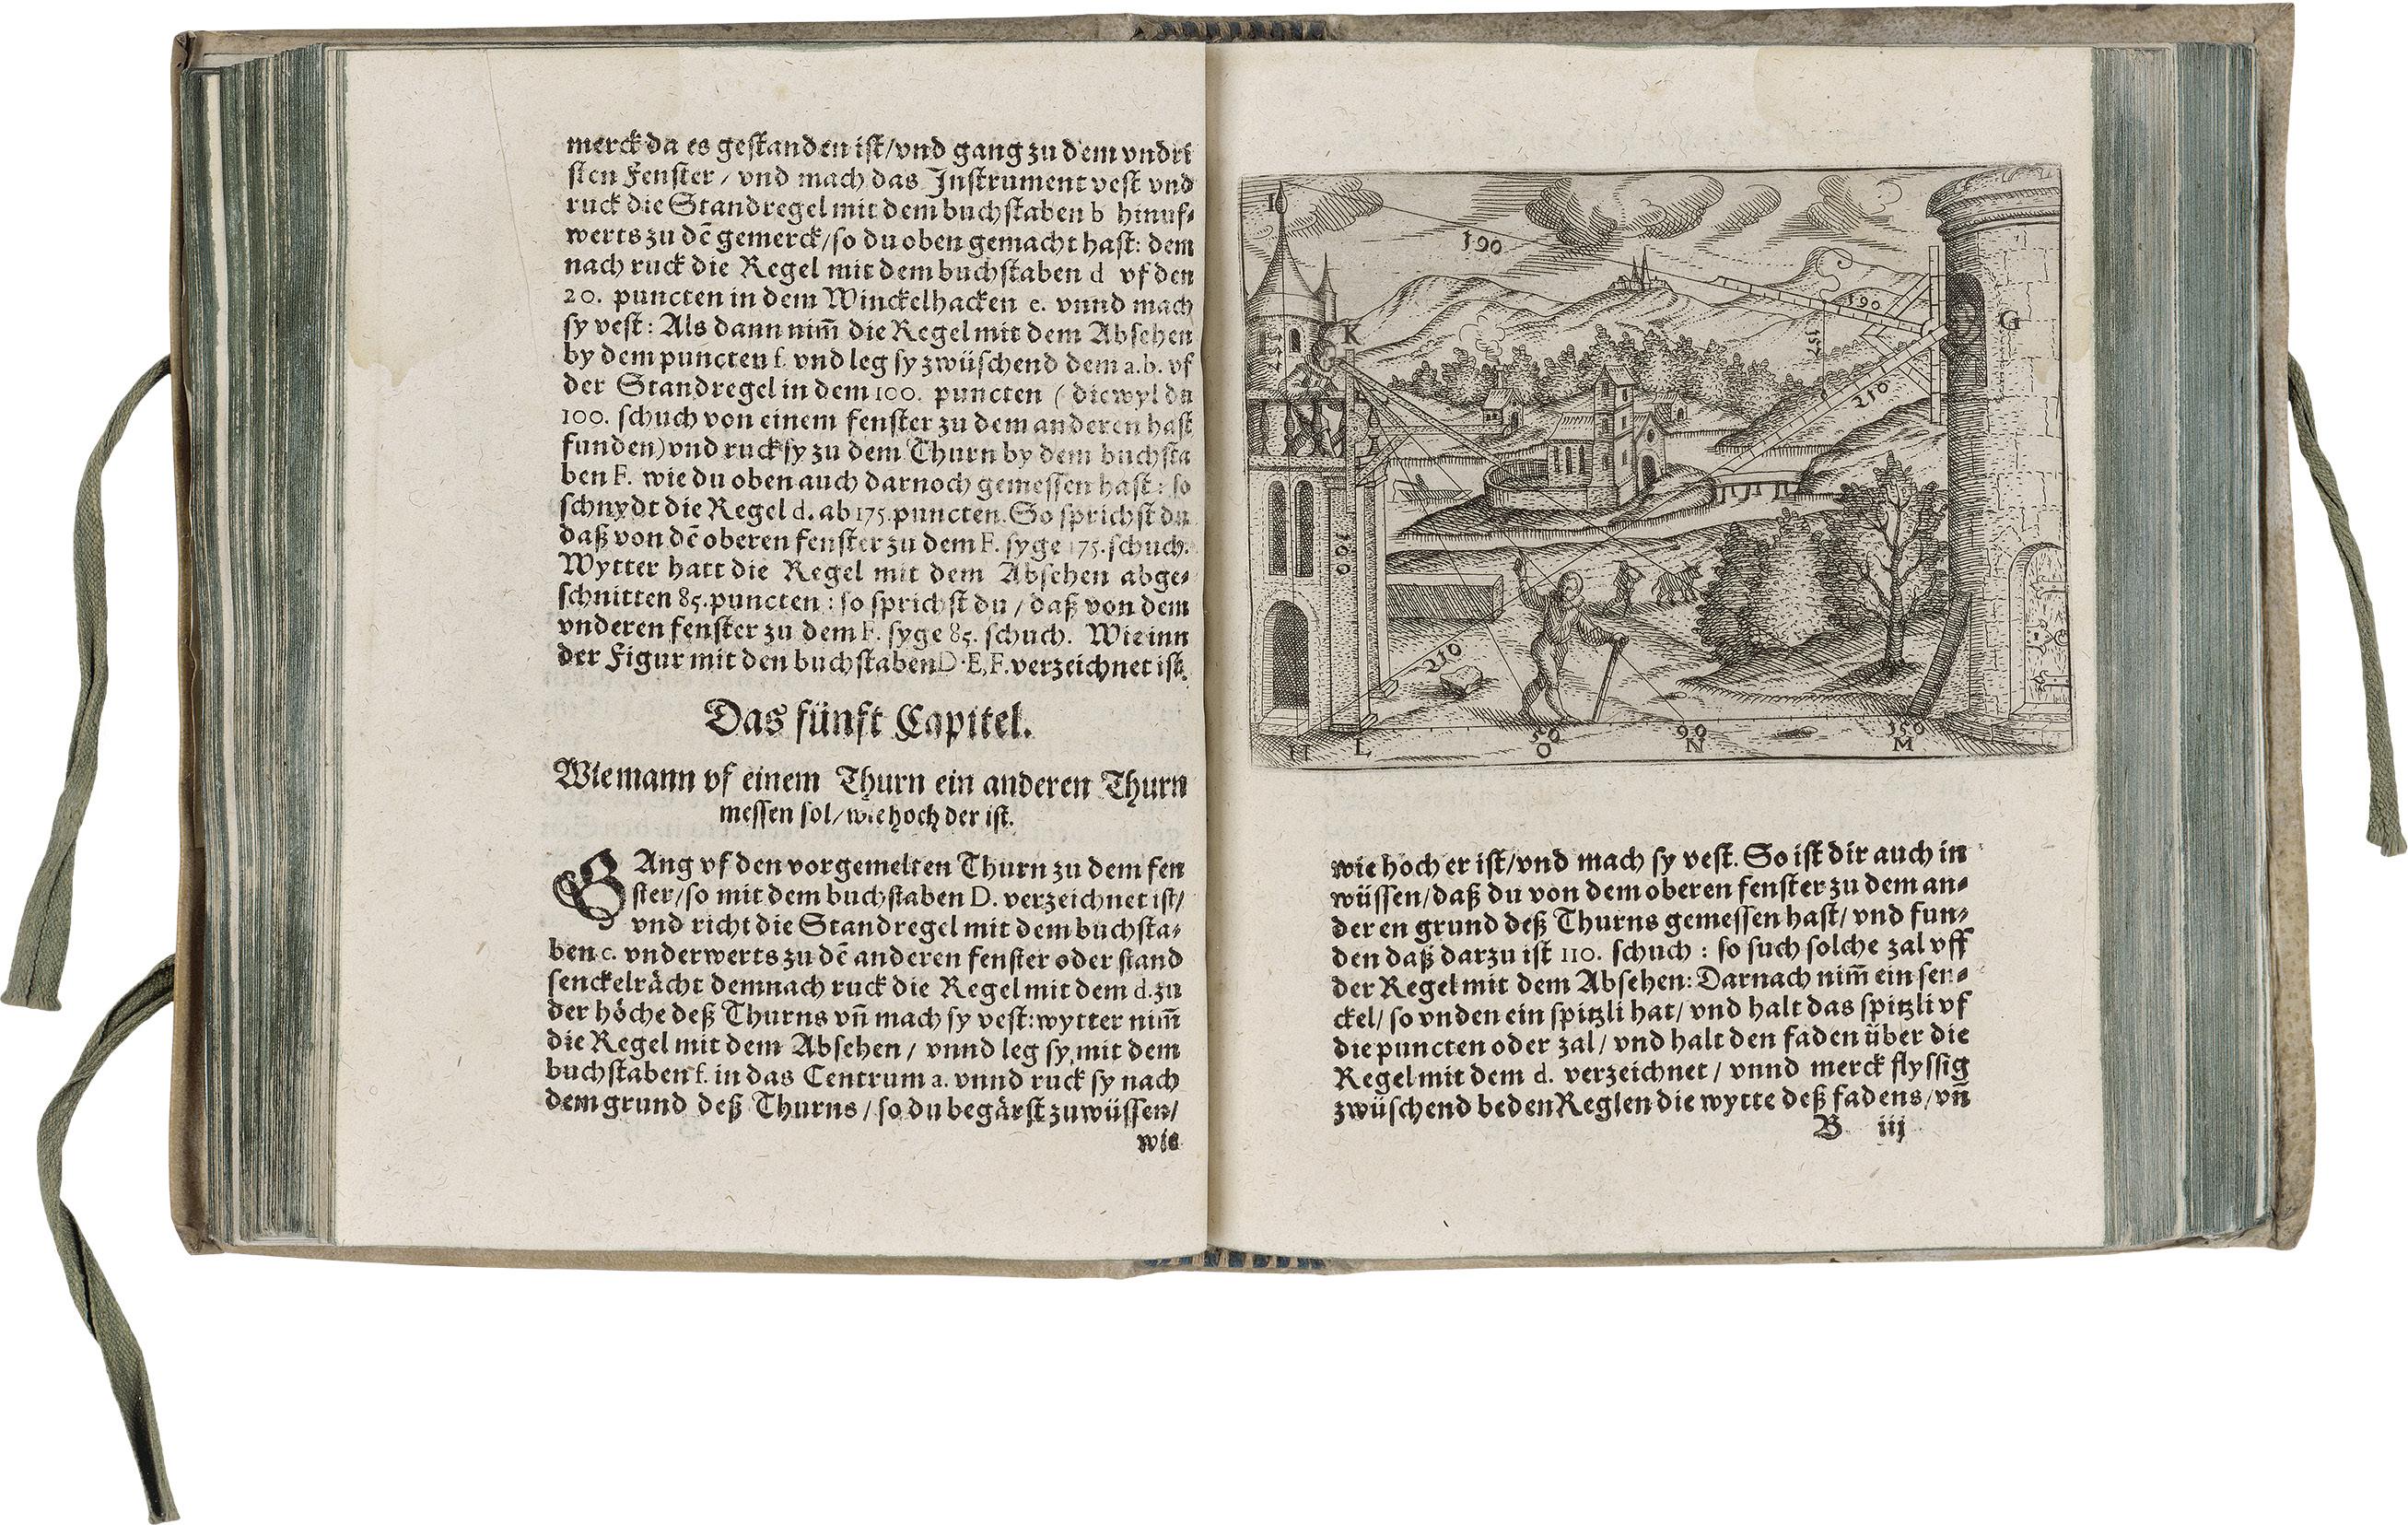 merck da es gestanden ist/vnd gang zu dem vndri
sten Fenster / vnd mach das Instrument vest vnd
ruck die Standregel mit dem buchstaben b hinuf⸗
werts zu dē gemerck/so du oben gemacht hast: dem
nach ruck die Regel mit dem buchstaben d vf den
20. puncten in dem Winckelhacken e. vnnd mach
sy vest: Als dann nim̄ die Regel mit dem Absehen
by dem puncten f. vnd leg sy zwüschend dem a.b. vf
der Standregel in dem 100. puncten ( diewyl du
100. schuch von einem fenster zu dem anderen hast
funden) vnd ruck sy zu dem Thurn by dem buchsta
ben F. wie du oben auch darnoch gemessen hast: so
schnydt die Regel d. ab 175. puncten. So sprichst du
daß von dē oberen fenster zu dem F. syge 175. schuch.
Wytter hatt die Regel mit dem Absehen abge⸗
schnitten 85. puncten: so sprichst du / daß von dem
vnderen fenster zu dem F. syge 85. schuch. Wie inn
der Figur mit den buchstaben D. E, F. verzeichnet ist.
Das fünfft Capitel.
Wie mann vf einem Thurn ein anderen Thurn
messen sol/wie hoch der ist.
GAng vf den vorgemelten Thurn zu dem fen
ster/so mit dem buchstaben D. verzeichnet ist/
vnd richt die Standregel mit dem buchsta⸗
ben c. vnderwerts zu dē anderen fenster oder stand
senckelrächt demnach ruck die Regel mit dem d. zu
der höche deß Thurns vn̄ mach sy vest: wytter nim̄
die Regel mit dem Absehen / vnnd leg sy mit dem
buchstaben f. in das Centrum a. vnnd ruck sy nach
dem grund deß Thurns / so du begärst zu wüssen/
wie
I
190
190
G
K
157
210
100
210
H
L
50
O
90
N
150
M
wie hoch er ist/vnd mach sy vest. So ist dir auch in
wüssen/daß du von dem oberen fenster zu dem an⸗
deren grund deß Thurns gemessen hast/ vnd fun⸗
den daß darzu ist 110. schuch : so such solche zal vff
der Regel mit dem Absehen: Darnach nim̄ ein sen⸗
ckel/ so vnden ein spitzli hat/ vnd halt das spitzli vf
die puncten oder zal/ vnd halt den faden über die
Regel mit dem d. verzeichnet / vnnd merck flyssig
zwüschend beden Reglen die wytte deß fadens/vn̄
B iij